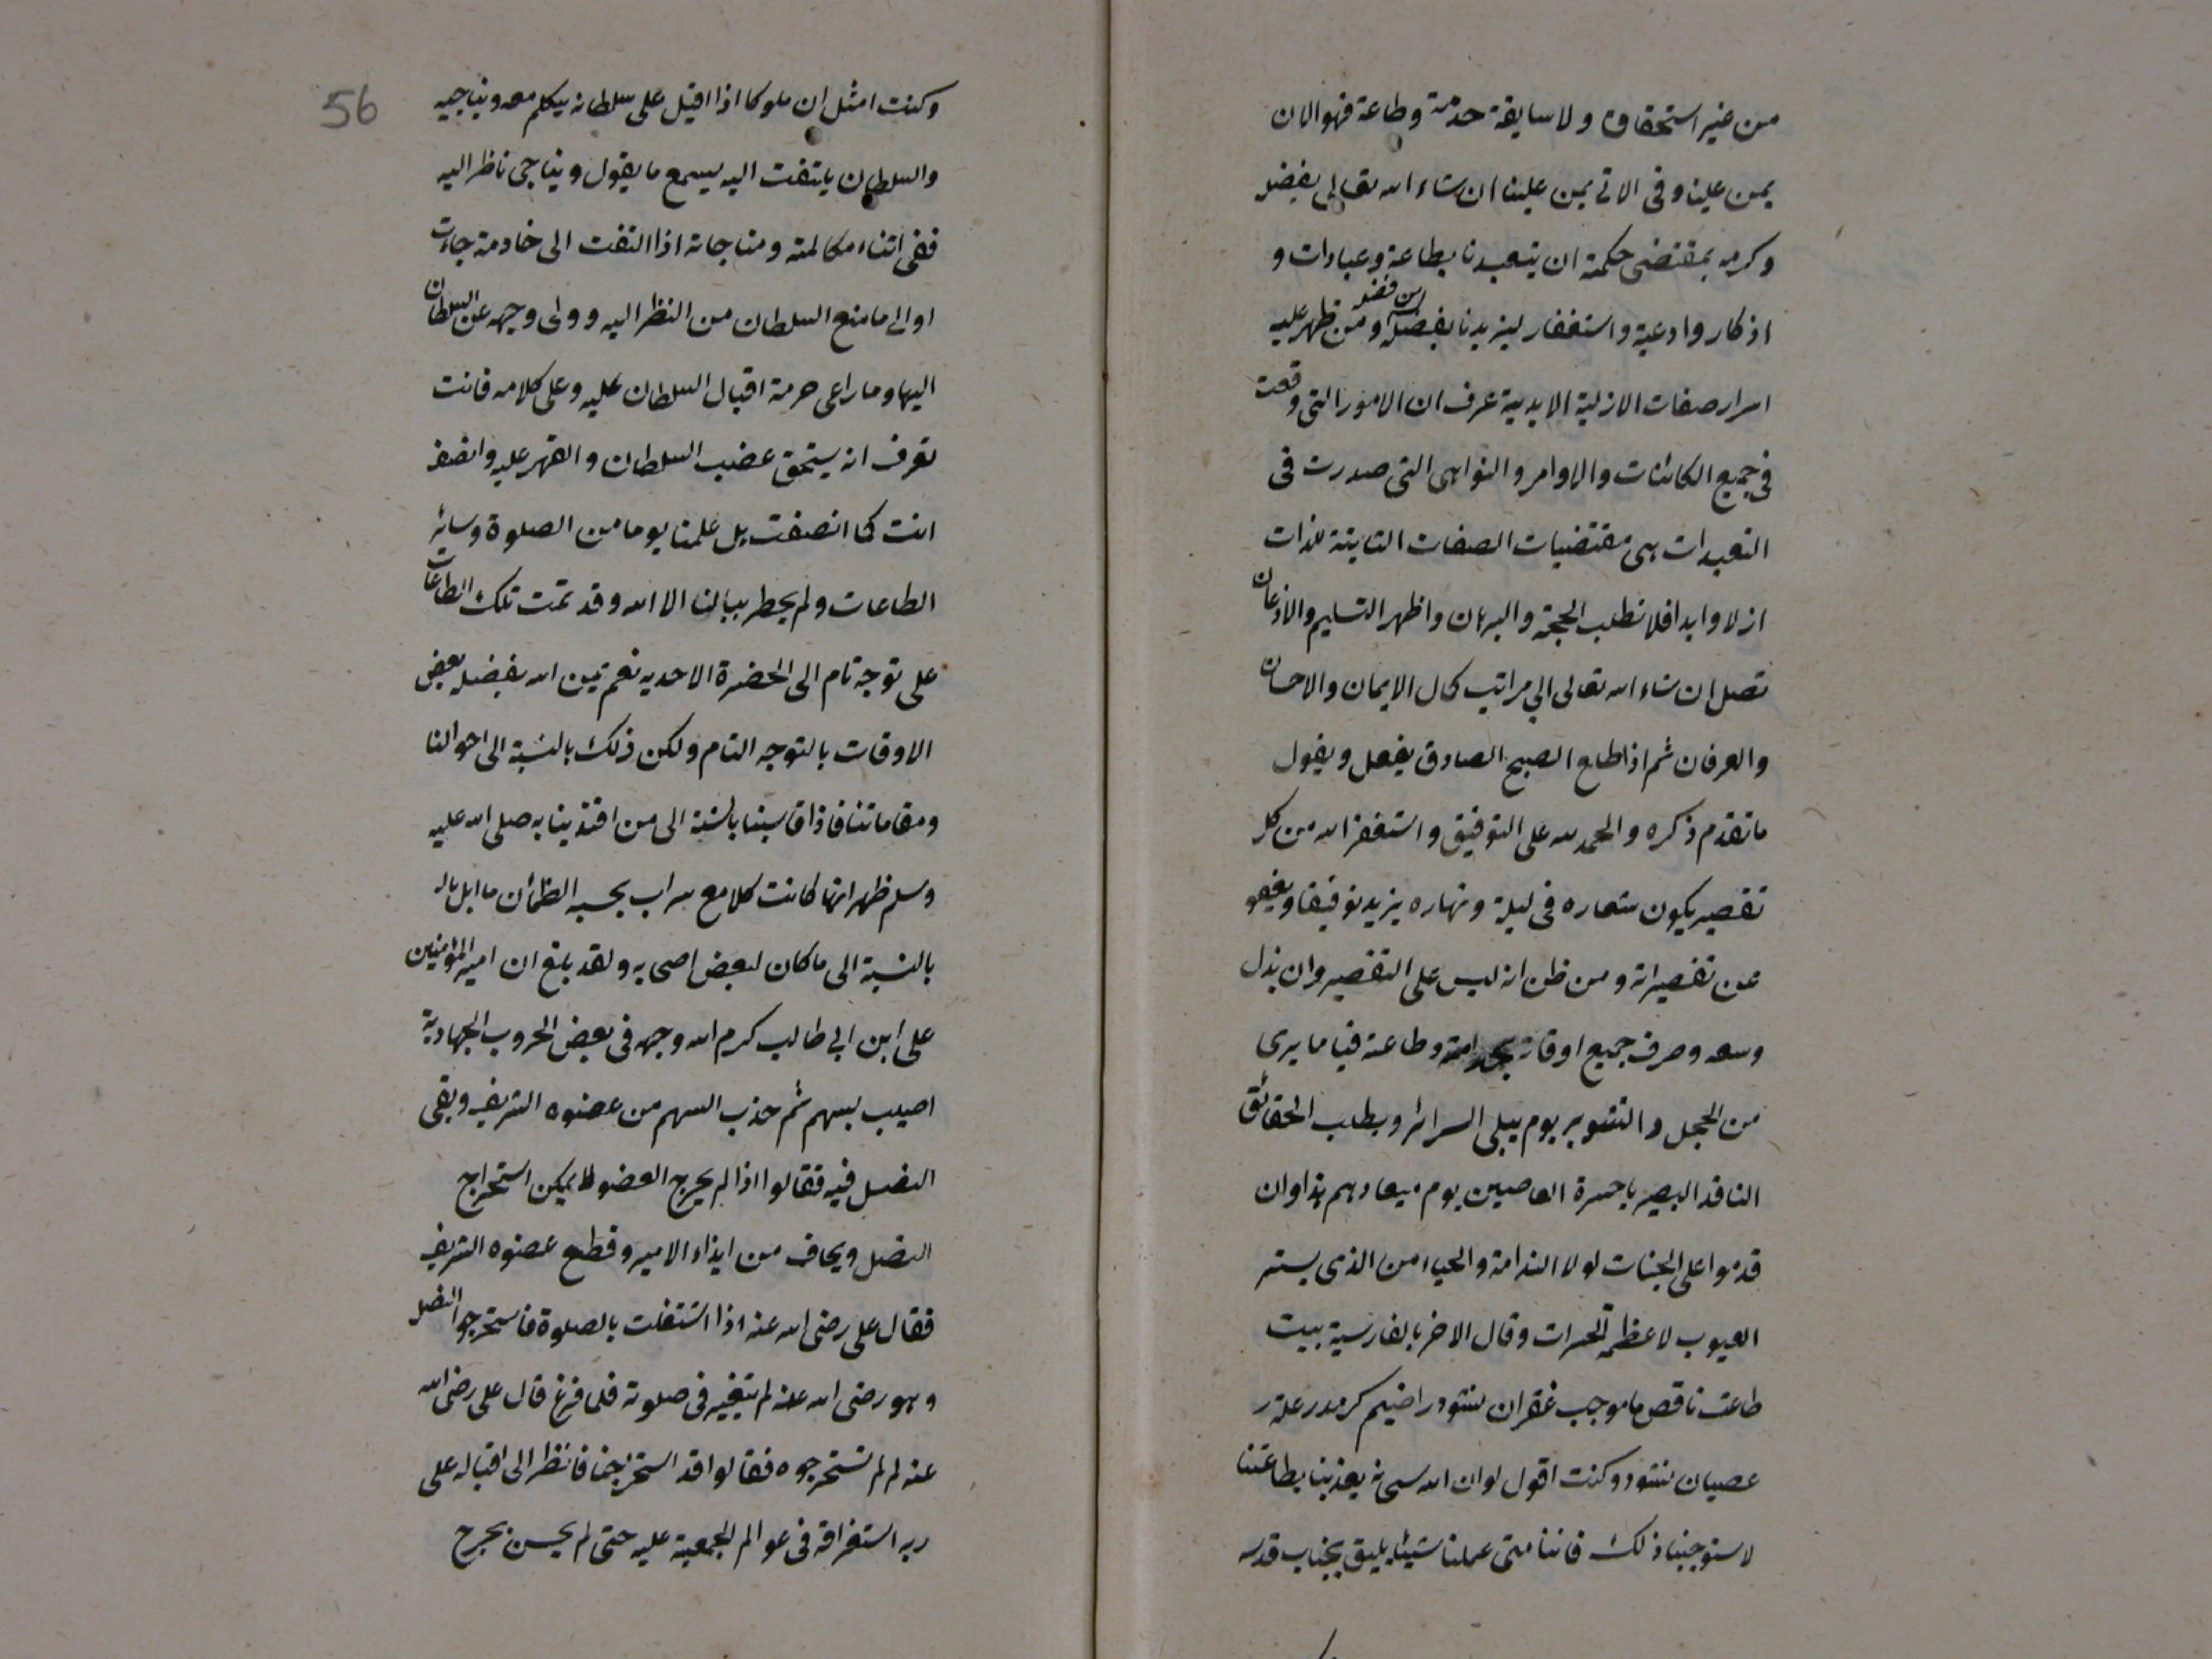 من غير استحقاق ولا سابقة خدمة وطاعة فهو الان
يمن علينا وفى الاتى يمن علينا ان شاء الله تعالى بفضله
وكرمه بمقتضى حكمته ان يتعبدنا بطاعة وعبادات و
اذكار وادعية واستغفار ليزيدنا بفضله من فضله ومن ظهر عليه
اسرار صفات الازلية الابدية عرف ان الامور التى وقعت
فى جميع الكائنات والاوامر والنواهى التى صدرت فى
التعبدات هى مقتضيات الصفات الثابتة للذات
ازلا وابدا فلا نطلب الحجة والبرهان واظهر التسليم والاذعان
تصل ان شاء الله تعالى الى مراتب كمال الايمان والاحسان
والعرفان ثم اذا طلع الصبح الصادق يفعل ويقول
ما تقدم ذكره والحمد لله على التوفيق واستغفر الله من كل
تقصير يكون شعاره فى ليله ونهاره يزيد توفيقا ويعفو
عن تقصيراته ومن ظن انه ليس على التقصير وان بذل
وسعه وصرف جميع اوقاته بخدامته وطاعته فيا ما يرى
من الخجل والتشوير يوم يبلى السرائر ويطلب الحقائق
الناقد البصير يا حسرة العاصين يوم ميعادهم هذا وان
قدموا على الجنات لولا الندامة والحياء من الذى يستر
العيوب لاعظم الحسرات وقال الاخر بالفارسية بيت
طاعت ناقص ما موجب غفران نشود راضيم كر مدد علت
عصيان نشود وكنت اقول لو ان الله سبحانه يعذبنا بطاعتنا
لاستوجبنا ذلك فاننا متى عملنا شيئا يليق بجناب قدسه
56
وكنت امثل ان ملوكا اذا اقبل على سلطانه يتكلم معه ويناجيه
والسلطان يلتفت اليه يسمع ما يقول ويناجى ناظرا اليه
ففى اثناء مكالمته ومناجاته اذا التفت الى خادمة جاءت
او الى ما منع السلطان من النظر اليه وولى وجهه عن السلطان
اليها وما راعى حرمة اقبال السلطان عليه وعلى كلامه فانت
تعرف انه يستحق غضب السلطان والقهر عليه وانصف
انت كما انصفت بل علمنا يوما من الصلوة وسائر
الطاعات ولم يخطر ببالنا الا الله وقد تمت تلك الطاعات
على توجه تام الى الحضرة الاحدية نعم يمن الله بفضله بعض
الاوقات بالتوجه التام ولكن ذلك بالنسبة الى احوالنا
ومقاماتنا فاذا قاسينا بالنسبة الى من اقتدينا به صلى الله عليه
وسلم ظهر انها كانت كلامع سراب يحسبه الظمأن ما بل بال
بالنسبة الى ما كان لبعض اصحابه ولقد بلغ ان امير المؤمنين
على ابن ابى طالب كرم الله وجهه فى بعض الحروب الجهادية
اصيب بسهم ثم جذب السهم من عضوه الشريف وبقى
النصل فيه فقالوا اذا لم يجرح العضو لا يمكن استخراج
النصل ويخاف من ايذاء الامير وقطع عضوه الشريف
فقال على رضى الله عنه اذا اشتغلت بالصلوة فاستخرجوا النصل
وهو رضى الله عنه لم يتغير فى صلوته فلما فرغ قال على رضى الله
عنه لم لم تستخرجوه فقالوا قد استخرجنا فانظر الى اقباله على
ربه استغراقه فى عوالم الجمعية عليه حتى لم يحس بجرح